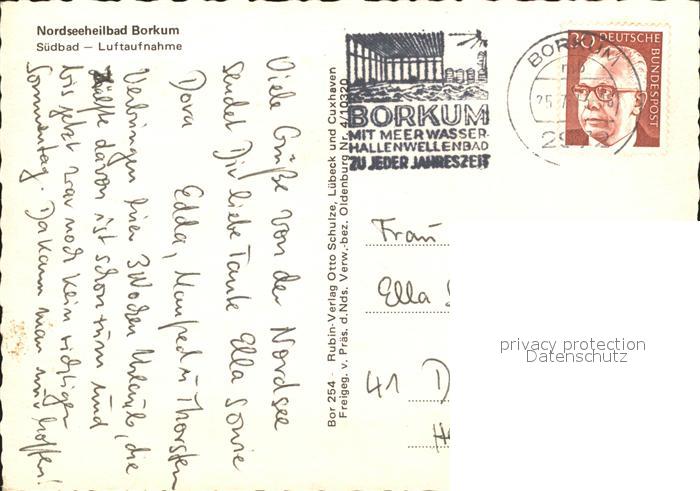 Nordseeheilbad Borkum
Südbad — Luftaufnahme
Viele Grüße von der Nordsee
sendet Dir liebe Tante Ella sowie
Dora
Edda, Manfred u. Thorsten
Verbringen hier 3 Wochen Urlaub, die
Hälfte davon ist schon rum und
bis jetzt war noch kein richtiger
Sonnentag. Da kann man nur hoffen!
Bor 254 - Rubin-Verlag Otto Schulze, Lübeck und Cuxhaven
Freigeg. v. Präs. d. Nds. Verw.-bez. Oldenburg Nr. 4/10320
BORKUM
MIT MEERWASSER-
HALLENWELLENBAD
ZU JEDER JAHRESZEIT
BORKUM
25.7.
30 DEUTSCHE BUNDESPOST
Frau
Ella
41 D
privacy protection
Datenschutz